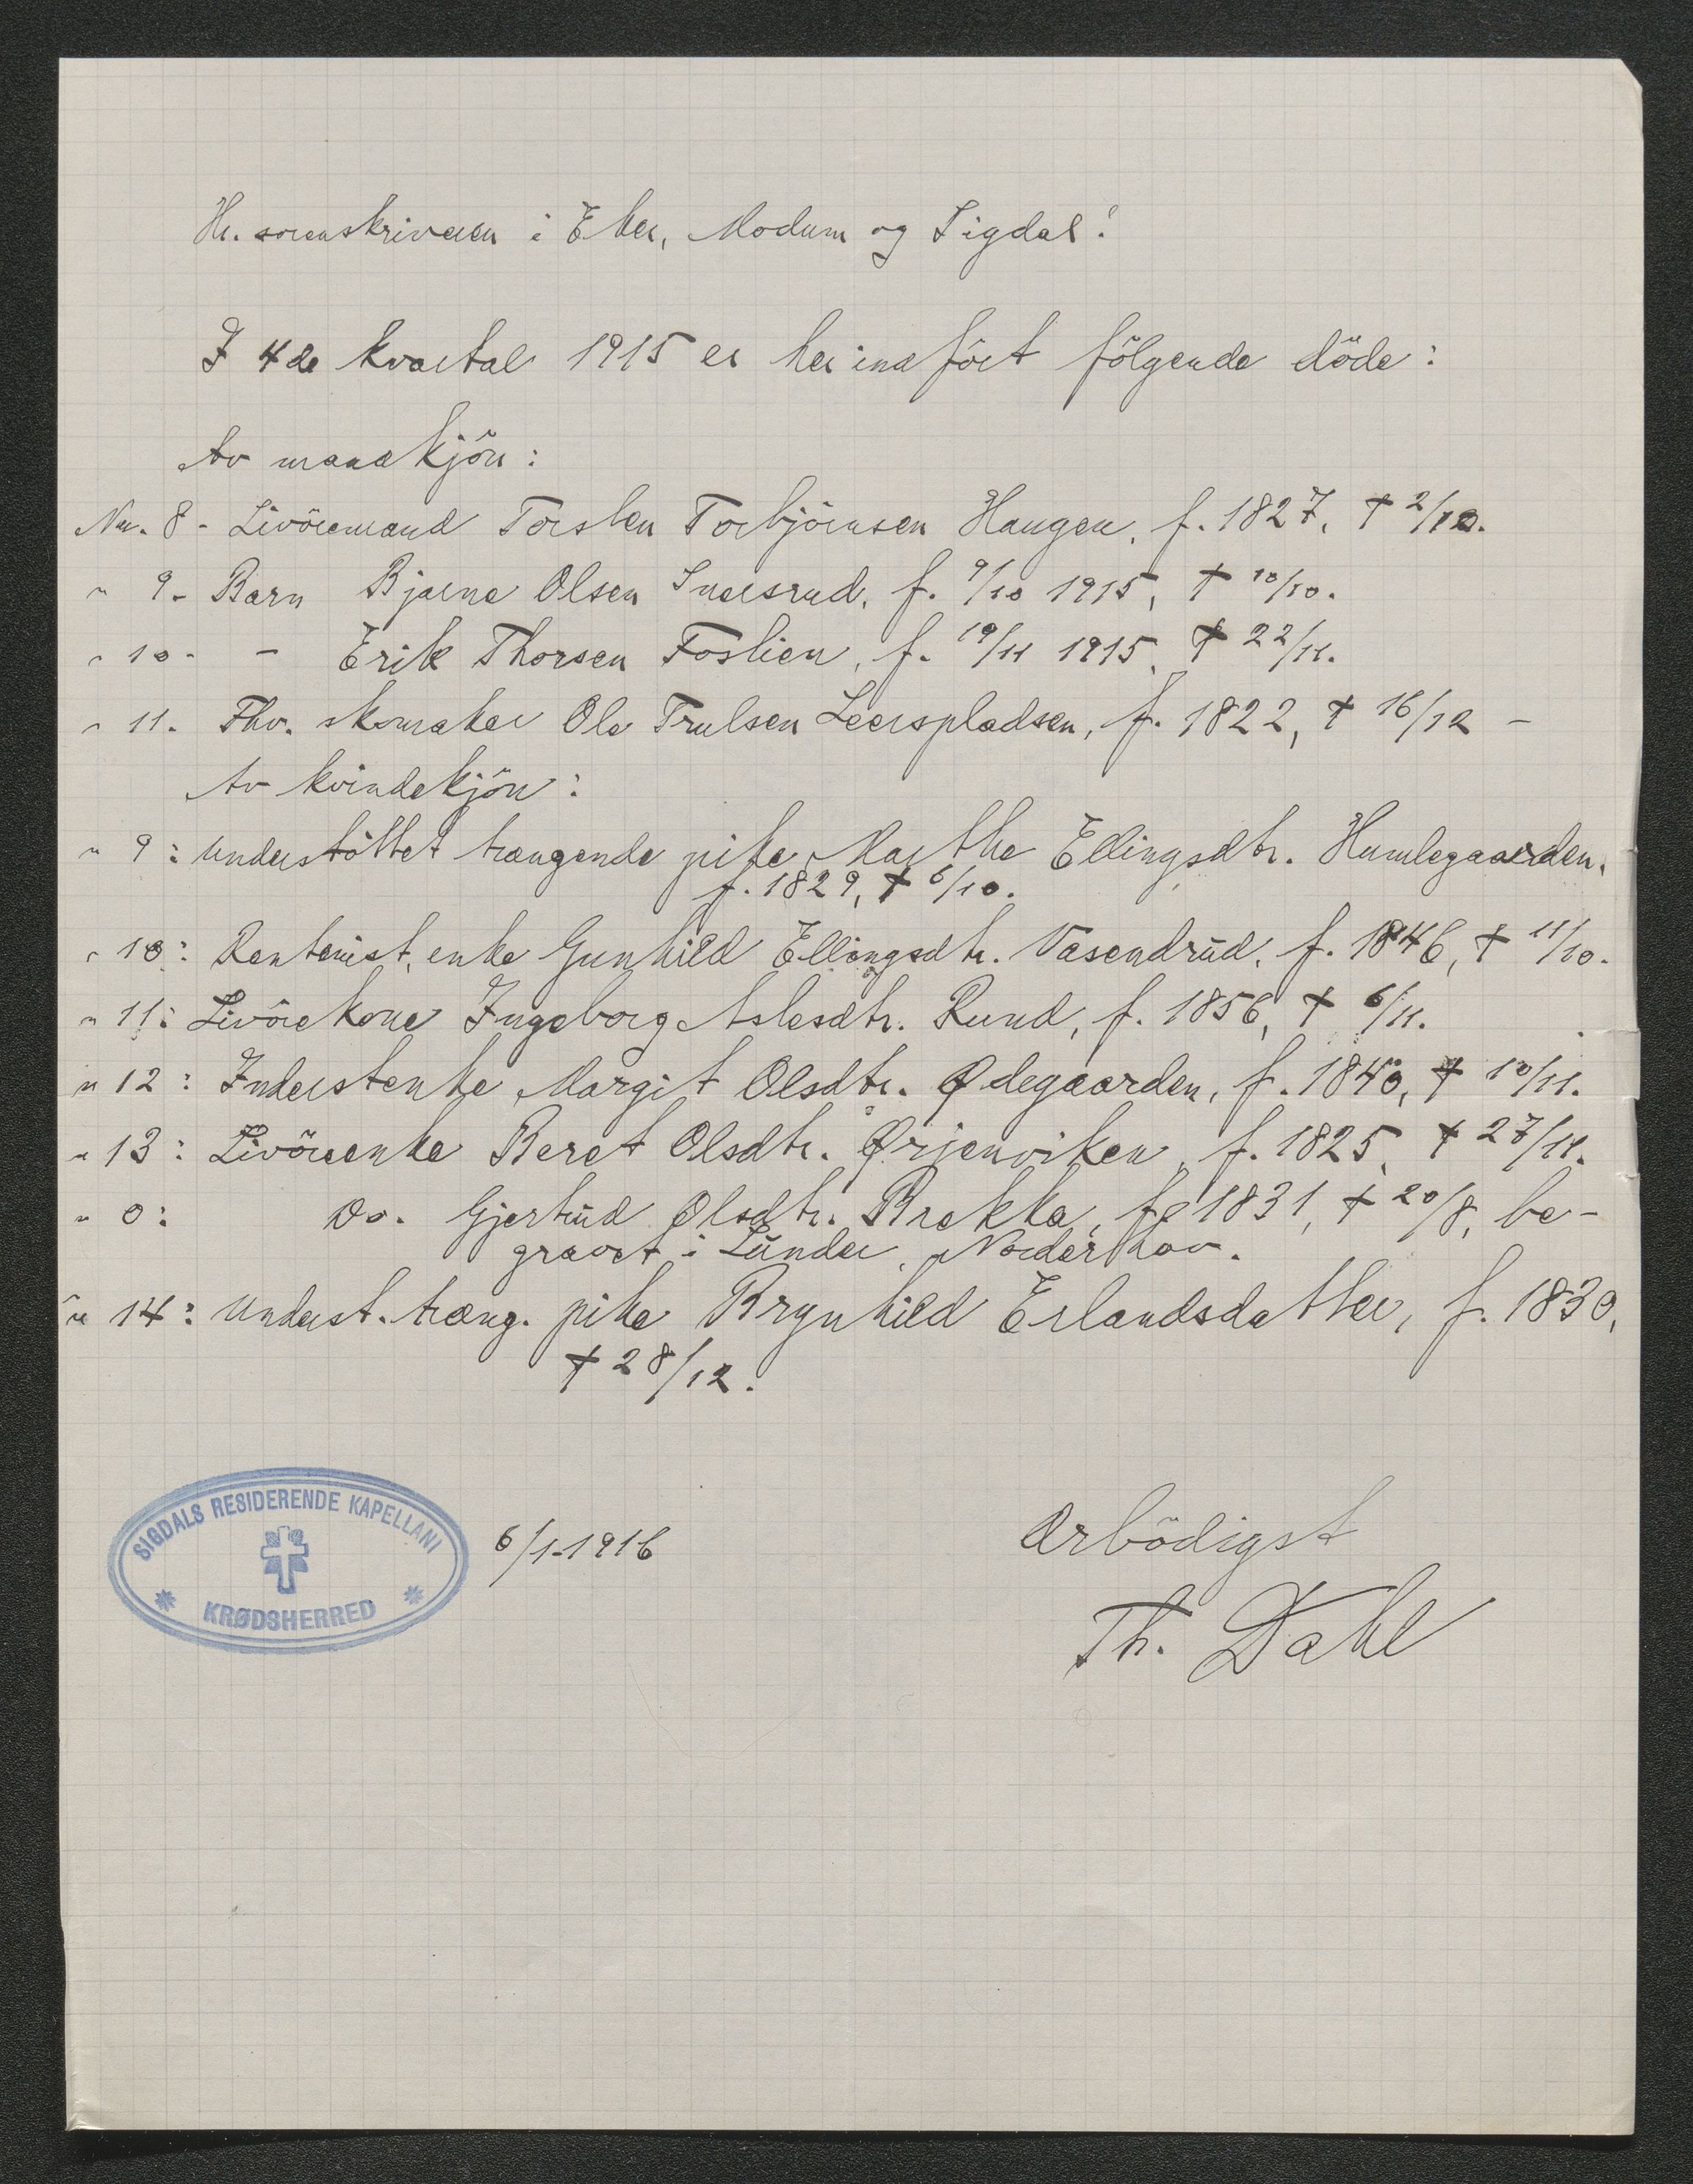 Hr. sorenskriveren i Eker, Modum og Sigdal!
I 4de kvartal 1915 er her indfört fölgende döde:
Av mandkjön:
Nr. 8 - Livöremand Torsten Torbjörnsen Haugen, f. 1827, † 2/10.
" 9 - Barn Bjarne Olsen Snersrud, f. 9/10 1915, † 10/10.
" 10 - - Erik Thorsen Foslien, f. 19/11 1915, † 22/11.
" 11. Fhv. skomaker Ole Trulsen Leerspladsen, f. 1822, † 16/12 -
Av kvindekjön:
" 9: Understöttet trængende pike Marthe Ellingsdtr. Humlegaarden.
f. 1829, † 6/10.
" 10: Rentenist, enke Gunhild Ellingsdtr. Vasendrud, f. 1846, † 11/10.
" 11: Livörekone Ingeborg Aslesdtr. Rund, f. 1856, † 6/11.
" 12: Inderstenke Margit Olsdtr. Ødegaarden, f. 1840, † 10/11.
" 13: Livöreenke Beret Olsdtr. Ørjenviken, f. 1825, † 27/11.
" 0: Do. Gjertrud Olsdtr. Brekka, f. 1831, † 20/8, be-
gravet i Lunder, Norderhov.
" 14: Underst. træng. pike Brynhild Erlandsdatter, f. 1830,
† 28/12.
SIGDALS RESIDERENDE KAPELLANI
KRØDSHERRED
6/1-1916
Ærbödigst
Th. Dahl